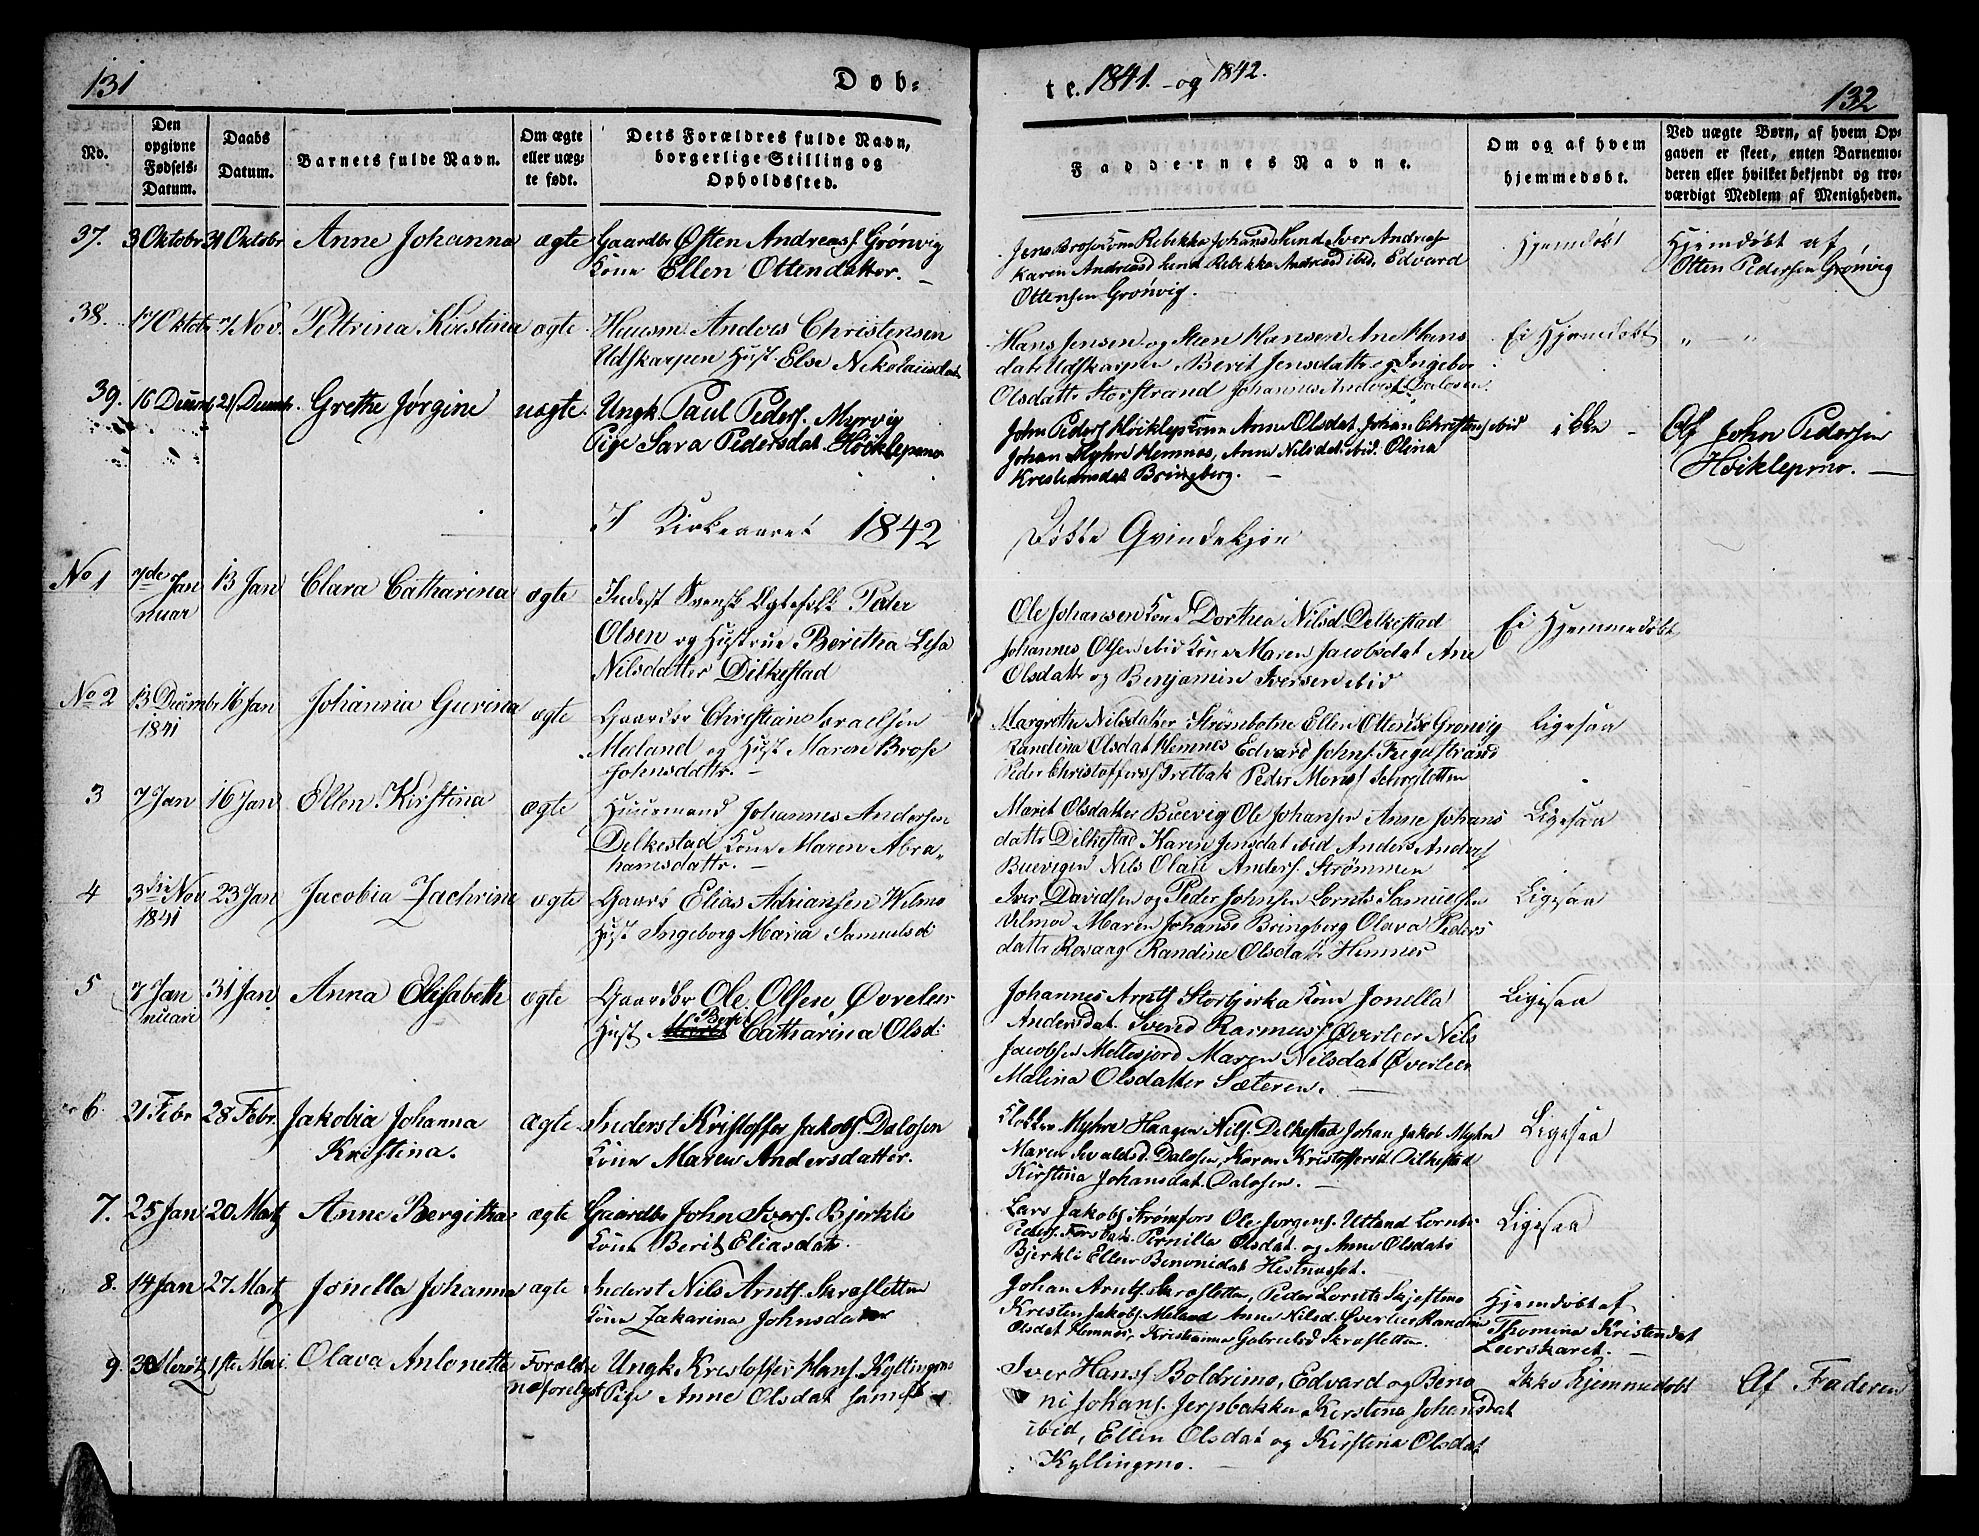 131
Døb-
te. 1841. og 1842.
132
No.
Den opgivne Fødsels-Datum.
Daabs Datum.
Barnets fulde Navn.
Om ægte eller uæg-te født.
Dets Forældres fulde Navn, borgerlige Stilling og Opholdssted.
Faddernes Navne.
Om og af hvem hjemmedøbt.
Ved uægte Børn, af hvem Op-
gaven er skeet, enten Barnemo-
deren eller hvilket bekjendt og tro-
værdigt Medlem af Menigheden.
37. 3 Oktobr 31 Oktobr Anne Johanna ægte Gaardbr Østen Andreasf Grönvig
Kone Ellen Ottendatter.
Jens Brose Kone Rebekka Johansd Sund Iver Andreasf
Karen Andreasd Sund Rebekka Andreasd ibid, Edvard
Ottensen Grönvig.
Hjemdøbt
Hjemdøbt af
Otten Pedersen Grønvig
38. 17 Oktobr 7 Nov. Peltrina Kirstina ægte Huusm Anders Christensen
Udskarpen Hust. Else Nikolaiisdat
Hans Jensen og Steen Hansen Ane Hans
dat Udskarpen, Berit Jensdattr og Ingebor
Olsdattr Storstrand Johannes Andersf. Dalosen.
Ei Hjemedøbt
" - "
39. 16 Decmb 21 Decmbr. Grethe Jørgine uægte Ungk Paul Pedersf. Myrvig
Pige Sara Pedersdat. Höiklepmo
John Pedersf Høiklep Kone Anne Olsdat. Johan Christensf ibid
Johan Myhre Hemnes, Anne Nilsdat ibid. Olina
Kristiansdat Bringberg.
ikke
Af John Pedersen
Høiklepmo.
I Kirkeaaret 1842
Døbte Qvindekjøn
No 1 7de Januar 13 Jan Clara Catharina ægte Inderst Svensk Ægtefolk Peder
Olsen og Hustrue Beritha Lisa
Nilsdatter Dilkestad
Ole Johansen Kone Dorthea Nilsd Delkestad
Johannes Olsen ibid Kone Maren Jacobsdat Ane
Olsdattr og Benjamin Iversen ibid
Ei Hjemmedøbt
No 2 13 Decembr 1841 16 Jan Johanna Gurina ægte Gaardbr Christian Israelsen
Meland og Hust Maren Brose
Johnsdattr.
Margrethe Nilsdatter Strømbotne Ellen Ottensd Gronvig
Randina Olsdat Hemnes Edvard Johnsf. Fugelstrand
Peder Christoffersf Trettbak Peder Monsf Seivesletten
Ligesaa
3 7 Jan 16 Jan Ellen Kirstina ægte Huusmand Johannes Andersen
Delkestad Kone Maren Abra-
hamsdattr.
Maret Olsdatter Buevig Ole Johansen Anne Johans
dattr Dilkestad Karen Jensdat ibid Anders Andersf
Buevigen Nils Olai Andersf. Strømmen
Ligesaa
4 3die Nov 1841 23 Jan Jacobia Zachrine ægte Gaardb Elias Adriansen Wilmo
Hust Ingeborg Maria Samuelsd:
Iver Davidsen og Peder Johnsen Lornts Samuelsen
Vilmoe Maren Johansd Bringberg Olava Peders
dattr Rosaag Randine Olsdattr Hemnes
Ligesaa
5 7 Januari 31 Jan Anna Elisabeth ægte Gaardbr Ole Olsen Øvreleer
Hust Berit Catharina Olsd:
Johannes Arntsf Storbjerka Kone Jonella
Andersdat. Svend Rasmusf. Øverleer Nils
Jacobsen Meltesjord Maren Nilsdat Øverleer
Malina Olsdatter Sæteren.
Ligesaa
6. 21 Febr 28 Febr. Jakobia Johanna
Kristina. ægte Inderst Kristoffer Jakobsf. Dalosen
Kone Maren Andersdatter.
Klokker Myhre Haagen Nilsf. Delkestad Johan Jakob Myhre
Maren Sivaldsd. Dalosen, Karen Kristoffersd Dilkestad
Kirstina Johansdat. Dalosen.
Ligesaa
7. 25 Jan 20 Marts Anne Bergitha ægte Gaardbr John Iversf. Bjerkli
Kone Berit Eliasdatr.
Lars Jakobsf Strømfors Ole Jorgensf. Utland Lornts
Pedersf. Forsbak Pernilla Olsdat. og Anne Olsdatr
Bjerkli Ellen Benonidat Hestnesset.
Ligesaa
8. 14 Jan 27 Marts Jonella Johanna ægte Inderst Nils Arntsf. Skrafletten
Kone Zakarina Johnsdatter
Johan Arntsf. Skrafletten, Peder Lornts Skjestmo
Kristen Jakobsf Meland Anne Nilsd. Øverleer Randine
Olsdat Hemnes, Kristianna Gabrielsd Skrafletten.
Hjemdøbt af
Thomina Kristendat
Leerskaret.
9. 30 Marts 1ste Mai. Olava Antonette Forældre
uæforelgst Ungk Kristoffer Hansf. Kyllingmo
Pige Anne Olsdat samest
Iver Hansf. Boldrimo, Edvard og Beno
ni Johansf. Jerpbakken Kerstina Johansdat
ibid, Ellen Olsdat og Kirstina Olsdat
Kyllingmo.
Ikke Hjemmedøbt
Af Faderen